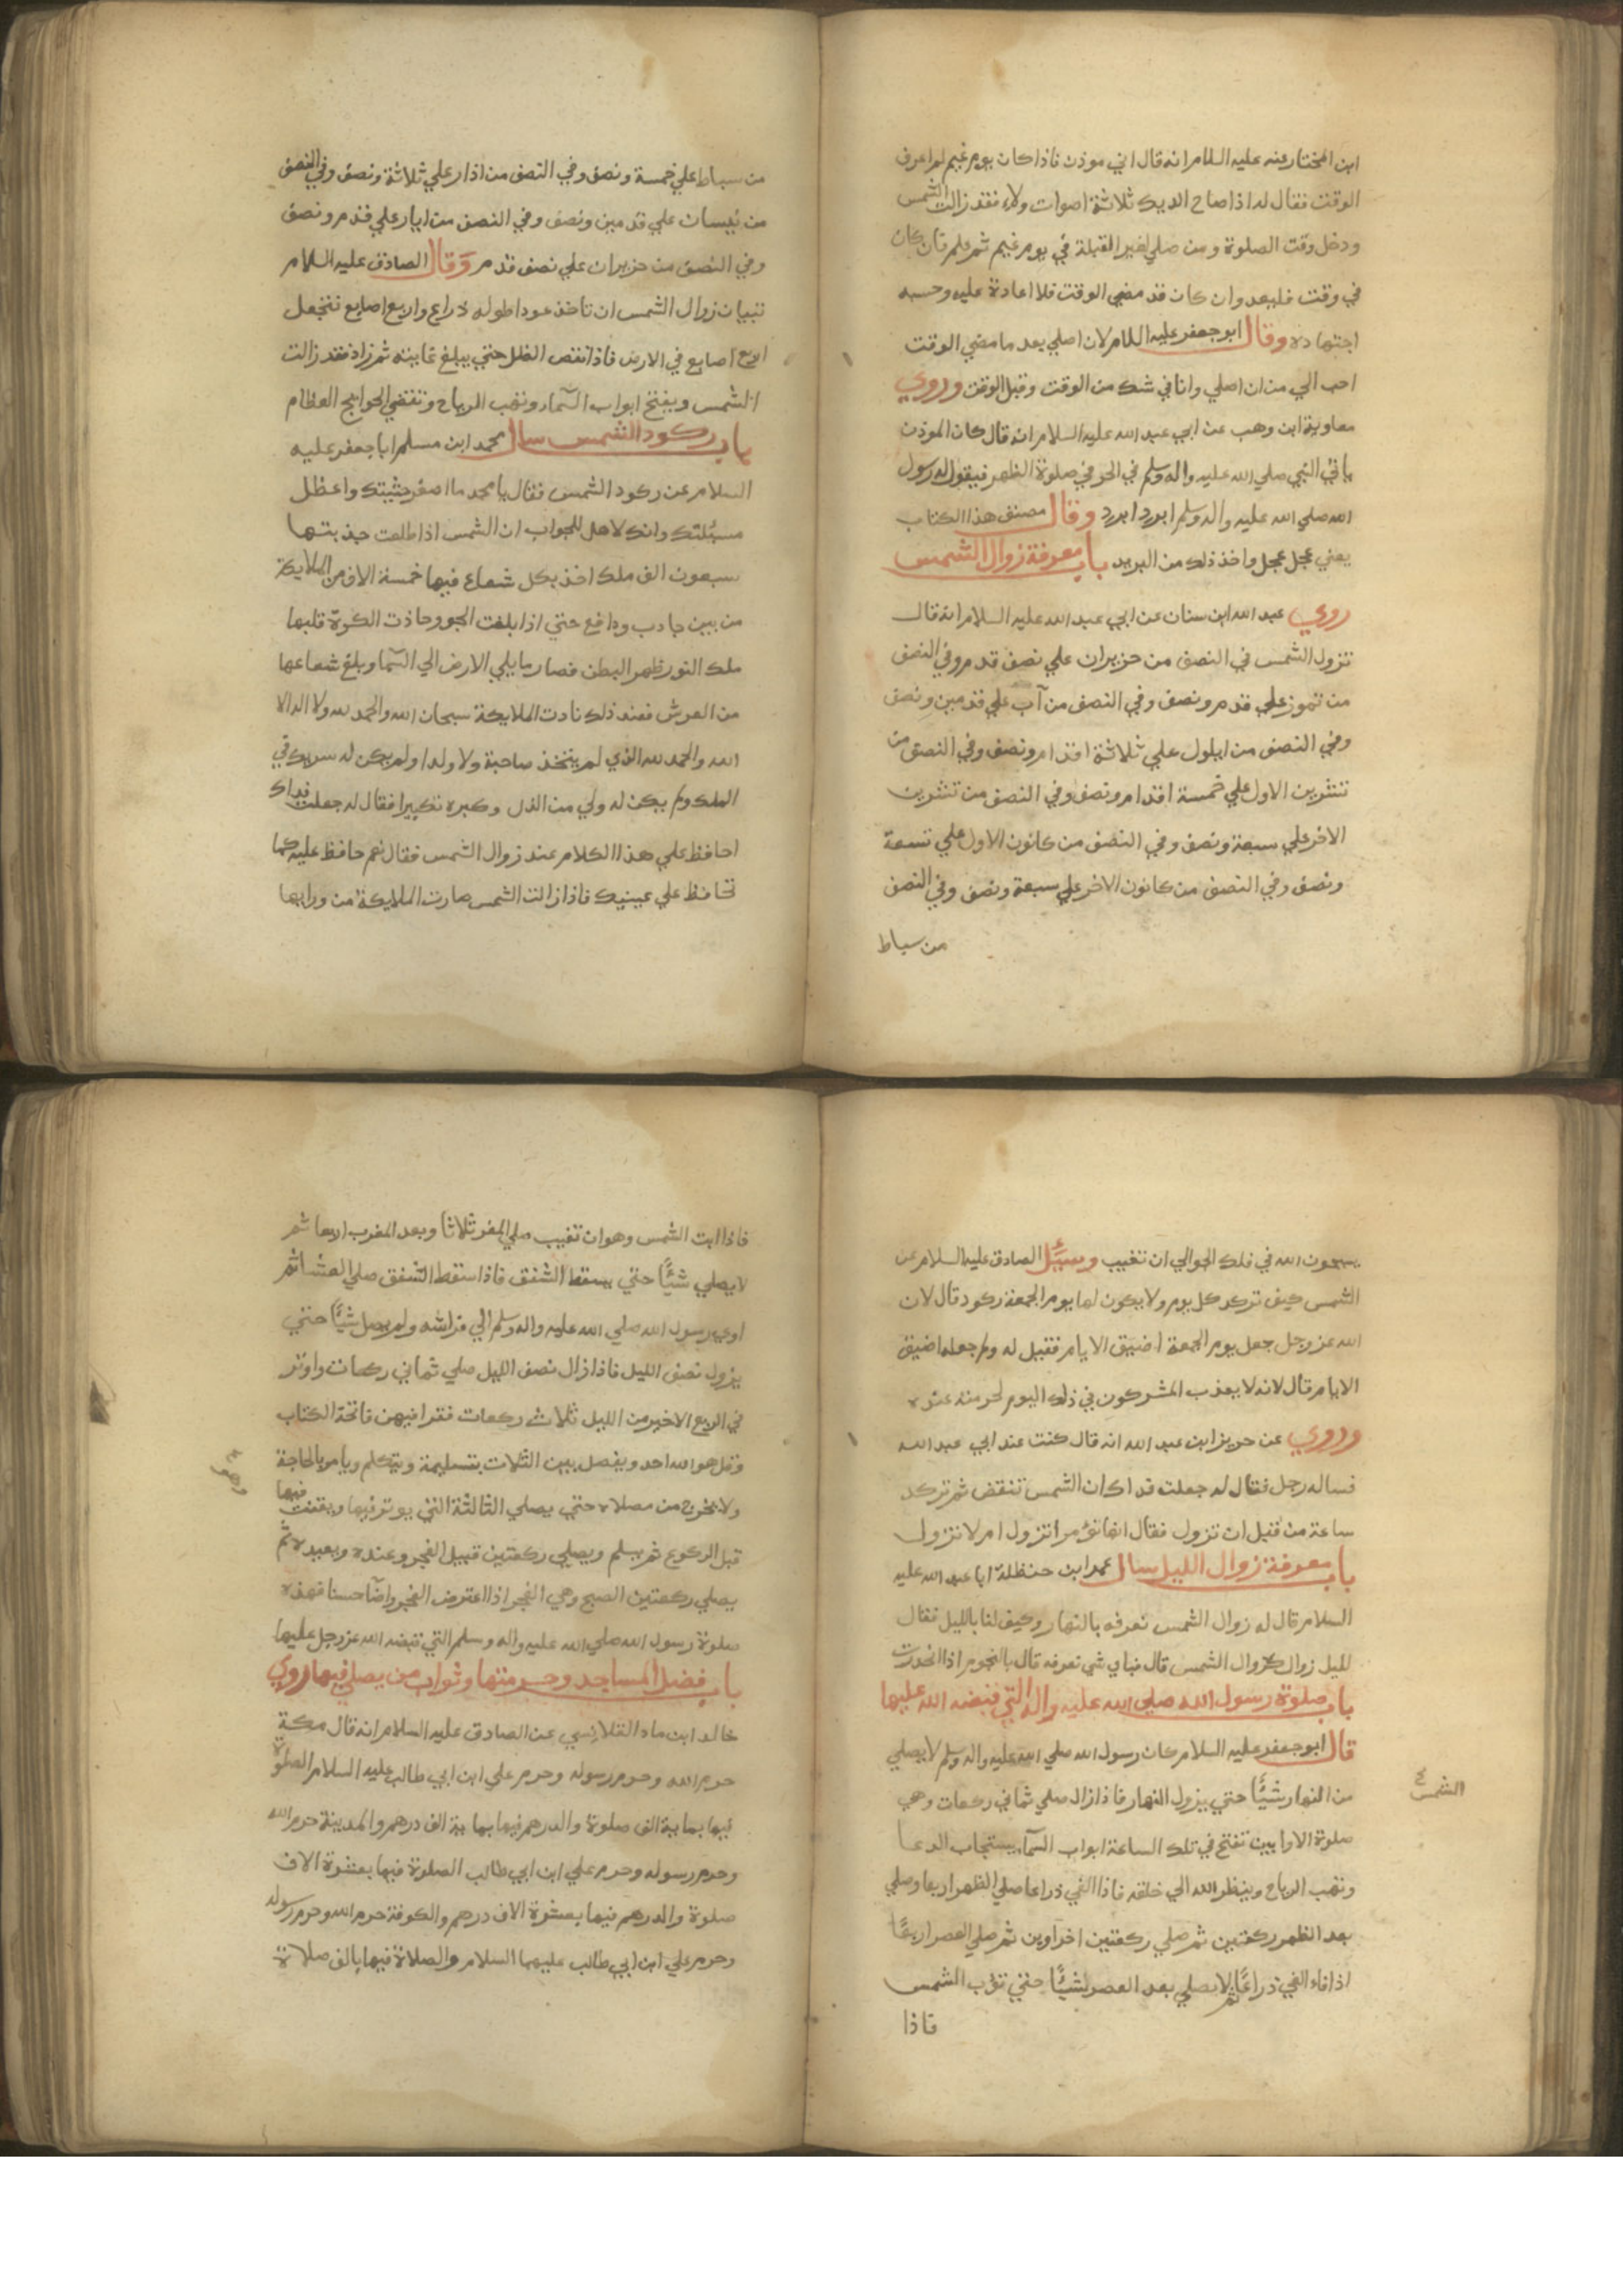 ابن المختار عنه عليه السلام انه قال اني موذن فاذا كان يوم غيم لم اعرف
الوقت فقال له اذا صاح الديك ثلاثة اصوات ولاء فقد زالت الشمس
ودخل وقت الصلوة ومن صلي لغير القبلة في يوم غيم ثم علم فان كان
في وقت فليعد وان كان قد مضي الوقت فلا اعادة عليه وحسبه
اجتهاده وقال ابو جعفر عليه السلام لان اصلي بعد ما مضي الوقت
احب الي من ان اصلي وانا في شك من الوقت وقبل الوقت وروي
معاوية ابن وهب عن ابي عبد الله عليه السلام انه قال كان الموذن
ياتي النبي صلي الله عليه واله وسلم في الحر في صلوة الظهر فيقول له رسول
الله صلي الله عليه واله وسلم ابرد ابرد وقال مصنف هذا الكتاب
يعني عجل عجل واخذ ذلك من البريد باب معرفة زوال الشمس
روي عبد الله ابن سنان عن ابي عبد الله عليه السلام انه قال
تزول الشمس في النصف من حزيران علي نصف قدم وفي النصف
من تموز علي قدم ونصف وفي النصف من آب علي قدمين ونصف
وفي النصف من ايلول علي ثلاثة اقدام ونصف وفي النصف من
تشرين الاول علي خمسة اقدام ونصف وفي النصف من تشرين
الاخر علي سبعة ونصف وفي النصف من كانون الاول علي تسعة
ونصف وفي النصف من كانون الاخر علي سبعة ونصف وفي النصف
من سباط
من سباط علي خمسة ونصف وفي النصف من اذار علي ثلاثة ونصف وفي النصف
من نيسان علي قدمين ونصف وفي النصف من ايار علي قدم ونصف
وفي النصف من حزيران علي نصف قدم وقال الصادق عليه السلام
تبيان زوال الشمس ان تاخذ عودا طوله ذراع واربع اصابع فتجعل
اربع اصابع في الارض فاذا نقص الظل حتي يبلغ غايته ثم زاد فقد زالت
الشمس ويفتح ابواب السماء وتهب الرياح وتقضي الحوايج العظام
باب ركود الشمس سال محمد ابن مسلم ابا جعفر عليه
السلام عن ركود الشمس فقال يا محمد ما اصغر جثيتك واعظل
مسئلتك وانك لاهل للجواب ان الشمس اذا طلعت جذبتها
سبعون الف ملك اخذ بكل شعاع فيها خمسة الاف من الملايكة
من بين جاذب ودافع حتي اذا بلغت الجو وحاذت الكوة قلبها
ملك النور ظهر البطن فصار ما يلي الارض الي السما وبلغ شعاعها
من العرش فعند ذلك نادت الملايكة سبحان الله والحمد لله ولا اله الا
الله والحمد لله الذي لم يتخذ صاحبة ولا ولدا ولم يكن له سريك في
الملك ولم يكن له ولي من الذل وكبره تكبيرا فقال له جعلت فداك
احافظ علي هذا الكلام عند زوال الشمس فقال نعم حافظ عليه كما
تحافظ علي عينيك فاذا زالت الشمس صارت الملايكة من ورايها
يسبحون الله في فلك الجو الي ان تغيب وسئل الصادق عليه السلام عن
الشمس كيف تركد كل يوم ولا يكون لها يوم الجمعة ركود قال لان
الله عز وجل جعل يوم الجمعة اضيق الايام فقيل له ولم جعله اضيق
الايام قال لانه لا يعذب المشركون في ذلك اليوم لحرمته عنده
وروي عن حريز ابن عبد الله انه قال كنت عند ابي عبد الله
فساله رجل فقال له جعلت فداك ان الشمس تنقض ثم تركد
ساعة من قبل ان تزول فقال انها تؤمر اتزول ام لا تزول
باب معرفة زوال الليل سال عمر ابن حنظلة ابا عبد الله عليه
السلام قال له زوال الشمس نعرفه بالنهار وكيف لنا بالليل فقال
لليل زوال كزوال الشمس قال فباي شي نعرفه قال بالنجوم اذا انحدرت
باب صلوة رسول الله صلي الله عليه واله التي قبضه الله عليها
قال ابو جعفر عليه السلام كان رسول الله صلي الله عليه واله وسلم لا يصلي
من النهار شيئًا حتي يزول النهار فاذا زال صلي ثماني ركعات وهي
الشمس
صلوة الاوابين تفتح في تلك الساعة ابواب السماء ويستجاب الدعا
وتهب الرياح وينظر الله الي خلقه فاذا الفي ذراعا صلي الظهر اربعا وصلي
بعد الظهر ركعتين ثم صلي ركعتين اخراوين ثم صلي العصر اربعًا
اذا فاء الفي ذراعًا ثم لا يصلي بعد العصر شيئًا حتي تؤب الشمس
فاذا
فاذا ابت الشمس وهو ان تغيب صلي المغر ثلاثا وبعد المغرب اربعا ثم
لا يصلي شيئًا حتي يسقط الشفق فاذا سقط الشفق صلي العشا ثم
اوي رسول الله صلي الله عليه واله وسلم الي فراشه ولم يصل شيئًا حتي
يزول نصف الليل فاذا زال نصف الليل صلي ثماني ركعات واوتر
في الربع الاخير من الليل ثلاث ركعات فقرا فيهن فاتحة الكتاب
وقل هو الله احد ويفصل بين الثلاث بتسليمة ويتكلم ويامر بالحاجة
ولا يخرج من مصلاه حتي يصلي الثالثة التي يوتر فيها ويقنت فيها
قبل الركوع ثم يسلم ويصلي ركعتين قبيل الفجر وعنده وبعيده ثم
يصلي ركعتين الصبح وهي الفجر اذا اعترض الفجر واضا حسنا فهذه
صلوة رسول الله صلي الله عليه واله وسلم التي قبضه الله عز وجل عليها
باب فضل المساجد وحرمتها وثواب من يصلي فيها روي
خالد ابن ماد القلانسي عن الصادق عليه السلام انه قال مكة
حرم الله وحرم رسوله وحرم علي ابن ابي طالب عليه السلام الصلوة
فيها بماية الف صلوة والدرهم فيها بماية الف درهم والمدينة حرم الله
وحرم رسوله وحرم علي ابن ابي طالب الصلوة فيها بعشرة الاف
صلوة والدرهم فيها بعشرة الاف درهم والكوفة حرم الله وحرم رسوله
وحرم علي ابن ابي طالب عليهما السلام والصلاة فيها بالف صلاة